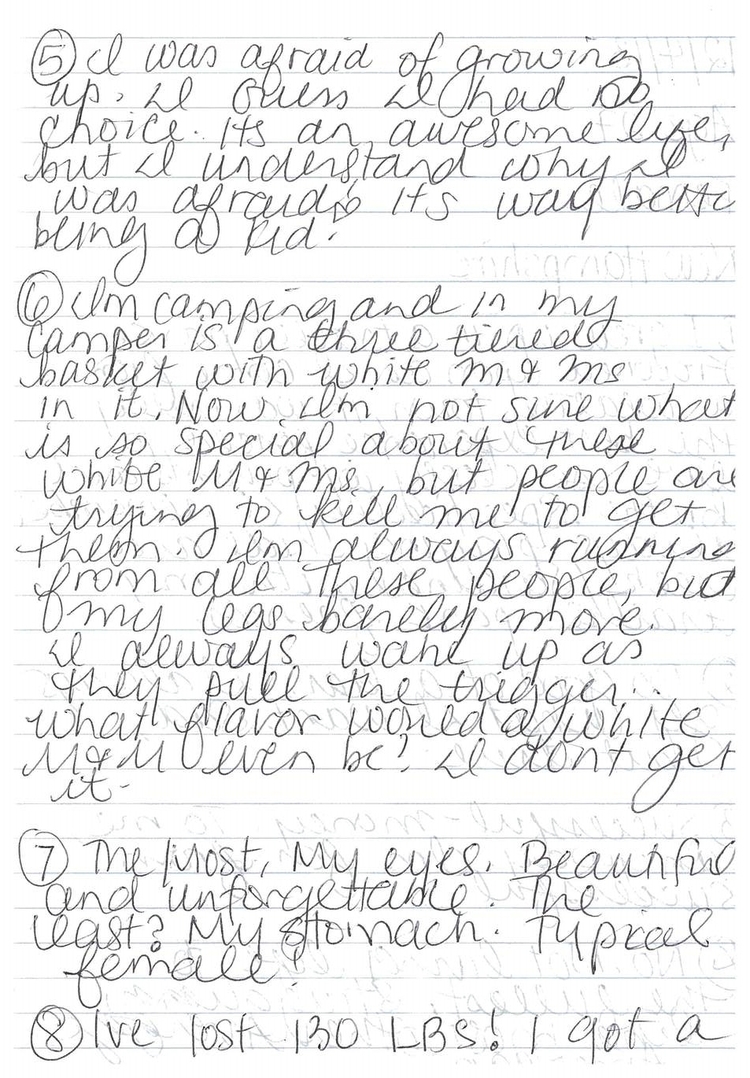 ⑤ I was afraid of growing
up. I guess I had no
choice. Its an awesome life,
but I understand why I
was afraid. Its way better
being a kid.
⑥ Im camping and in my
camper is a three tiered
basket with white m & ms
in it. Now Im not sure what
is so special about these
white M & Ms, but people are
trying to kill me to get
them. Im always running
from all these people, but
my legs barely move.
I always wake up as
they pull the trigger...
what flavor would a white
M&M even be? I dont get
it.
⑦ The Most, My eyes. Beautiful
and unforgettable. The
least? My stomach. Typical
female!
⑧ Ive lost 130 LBS! I got a